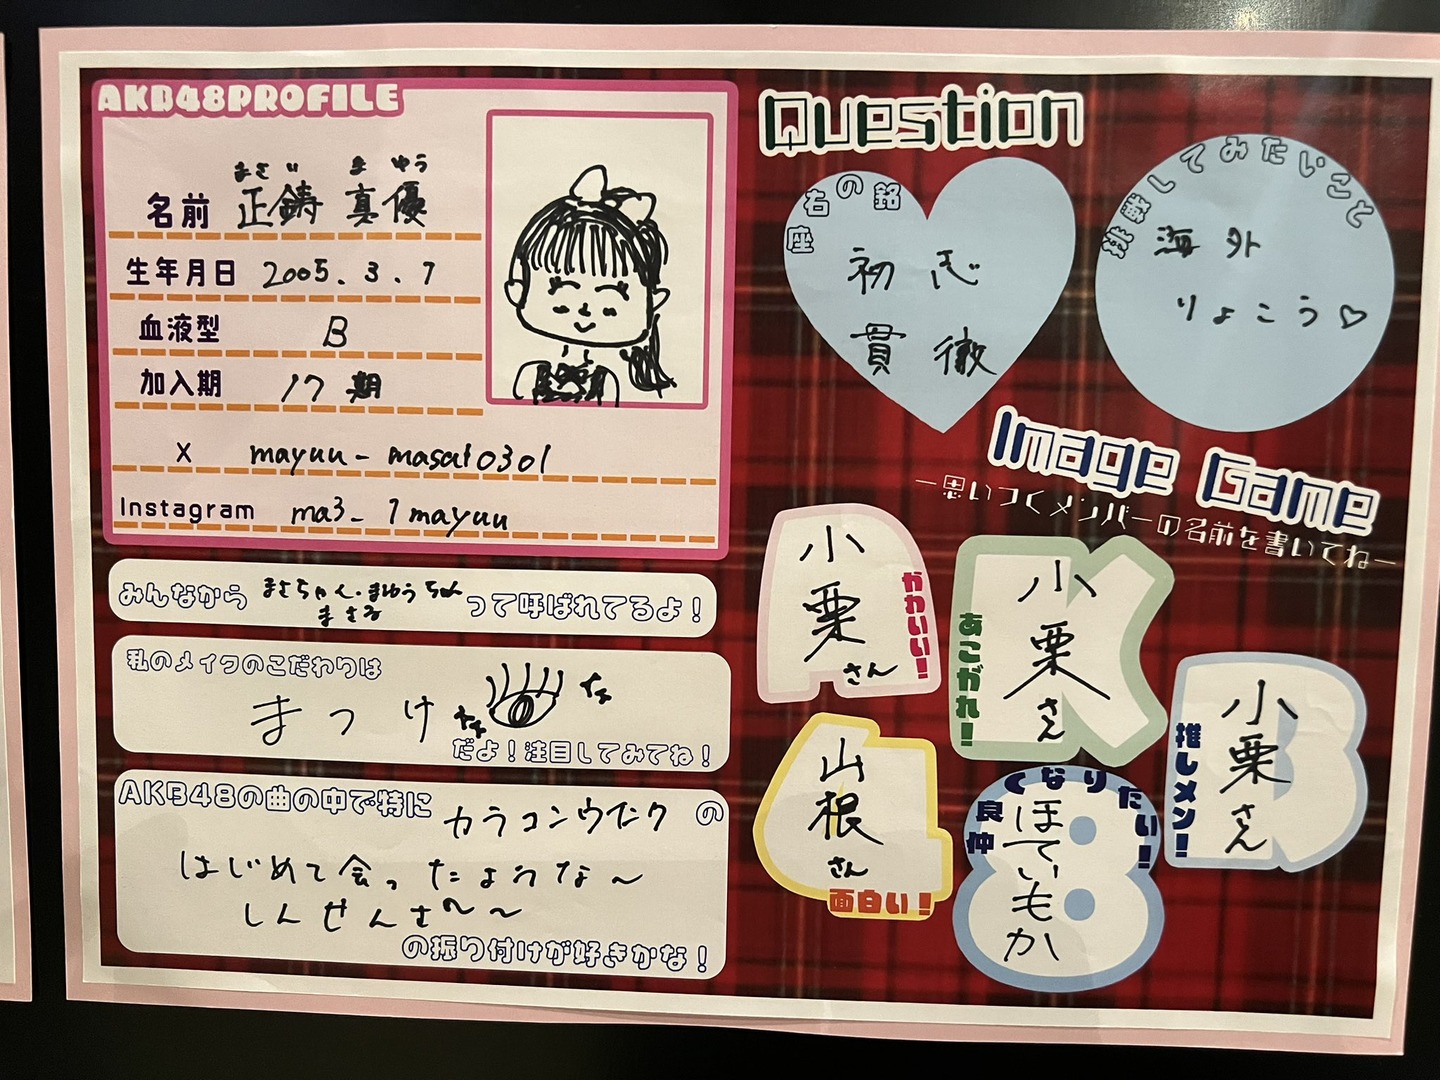 AKB48PROFILE
まさい まゆう
名前 正鋳 真優
生年月日 2005.3.7
血液型 B
加入期 17期
X mayuu_masai0301
Instagram ma3_1mayuu
みんなから まさちゃん・まゆうちゃん
まさる
って呼ばれてるよ!
私のメイクのこだわりは
まつ げ
だよ!注目してみてね!
AKB48の曲の中で特に カラコンウインク の
はじめて会ったような〜
しんせんさ〜〜
の振り付けが好きかな!
Question
座右の銘
初志
貫徹
挑戦してみたいこと
海外
りょこう♡
Image Game
ー思いつくメンバーの名前を書いてねー
小栗さん
かわいい!
小栗さん
あこがれ!
小栗さん
推しメン!
山根さん
面白い!
仲良くなりたい!
ほていもか